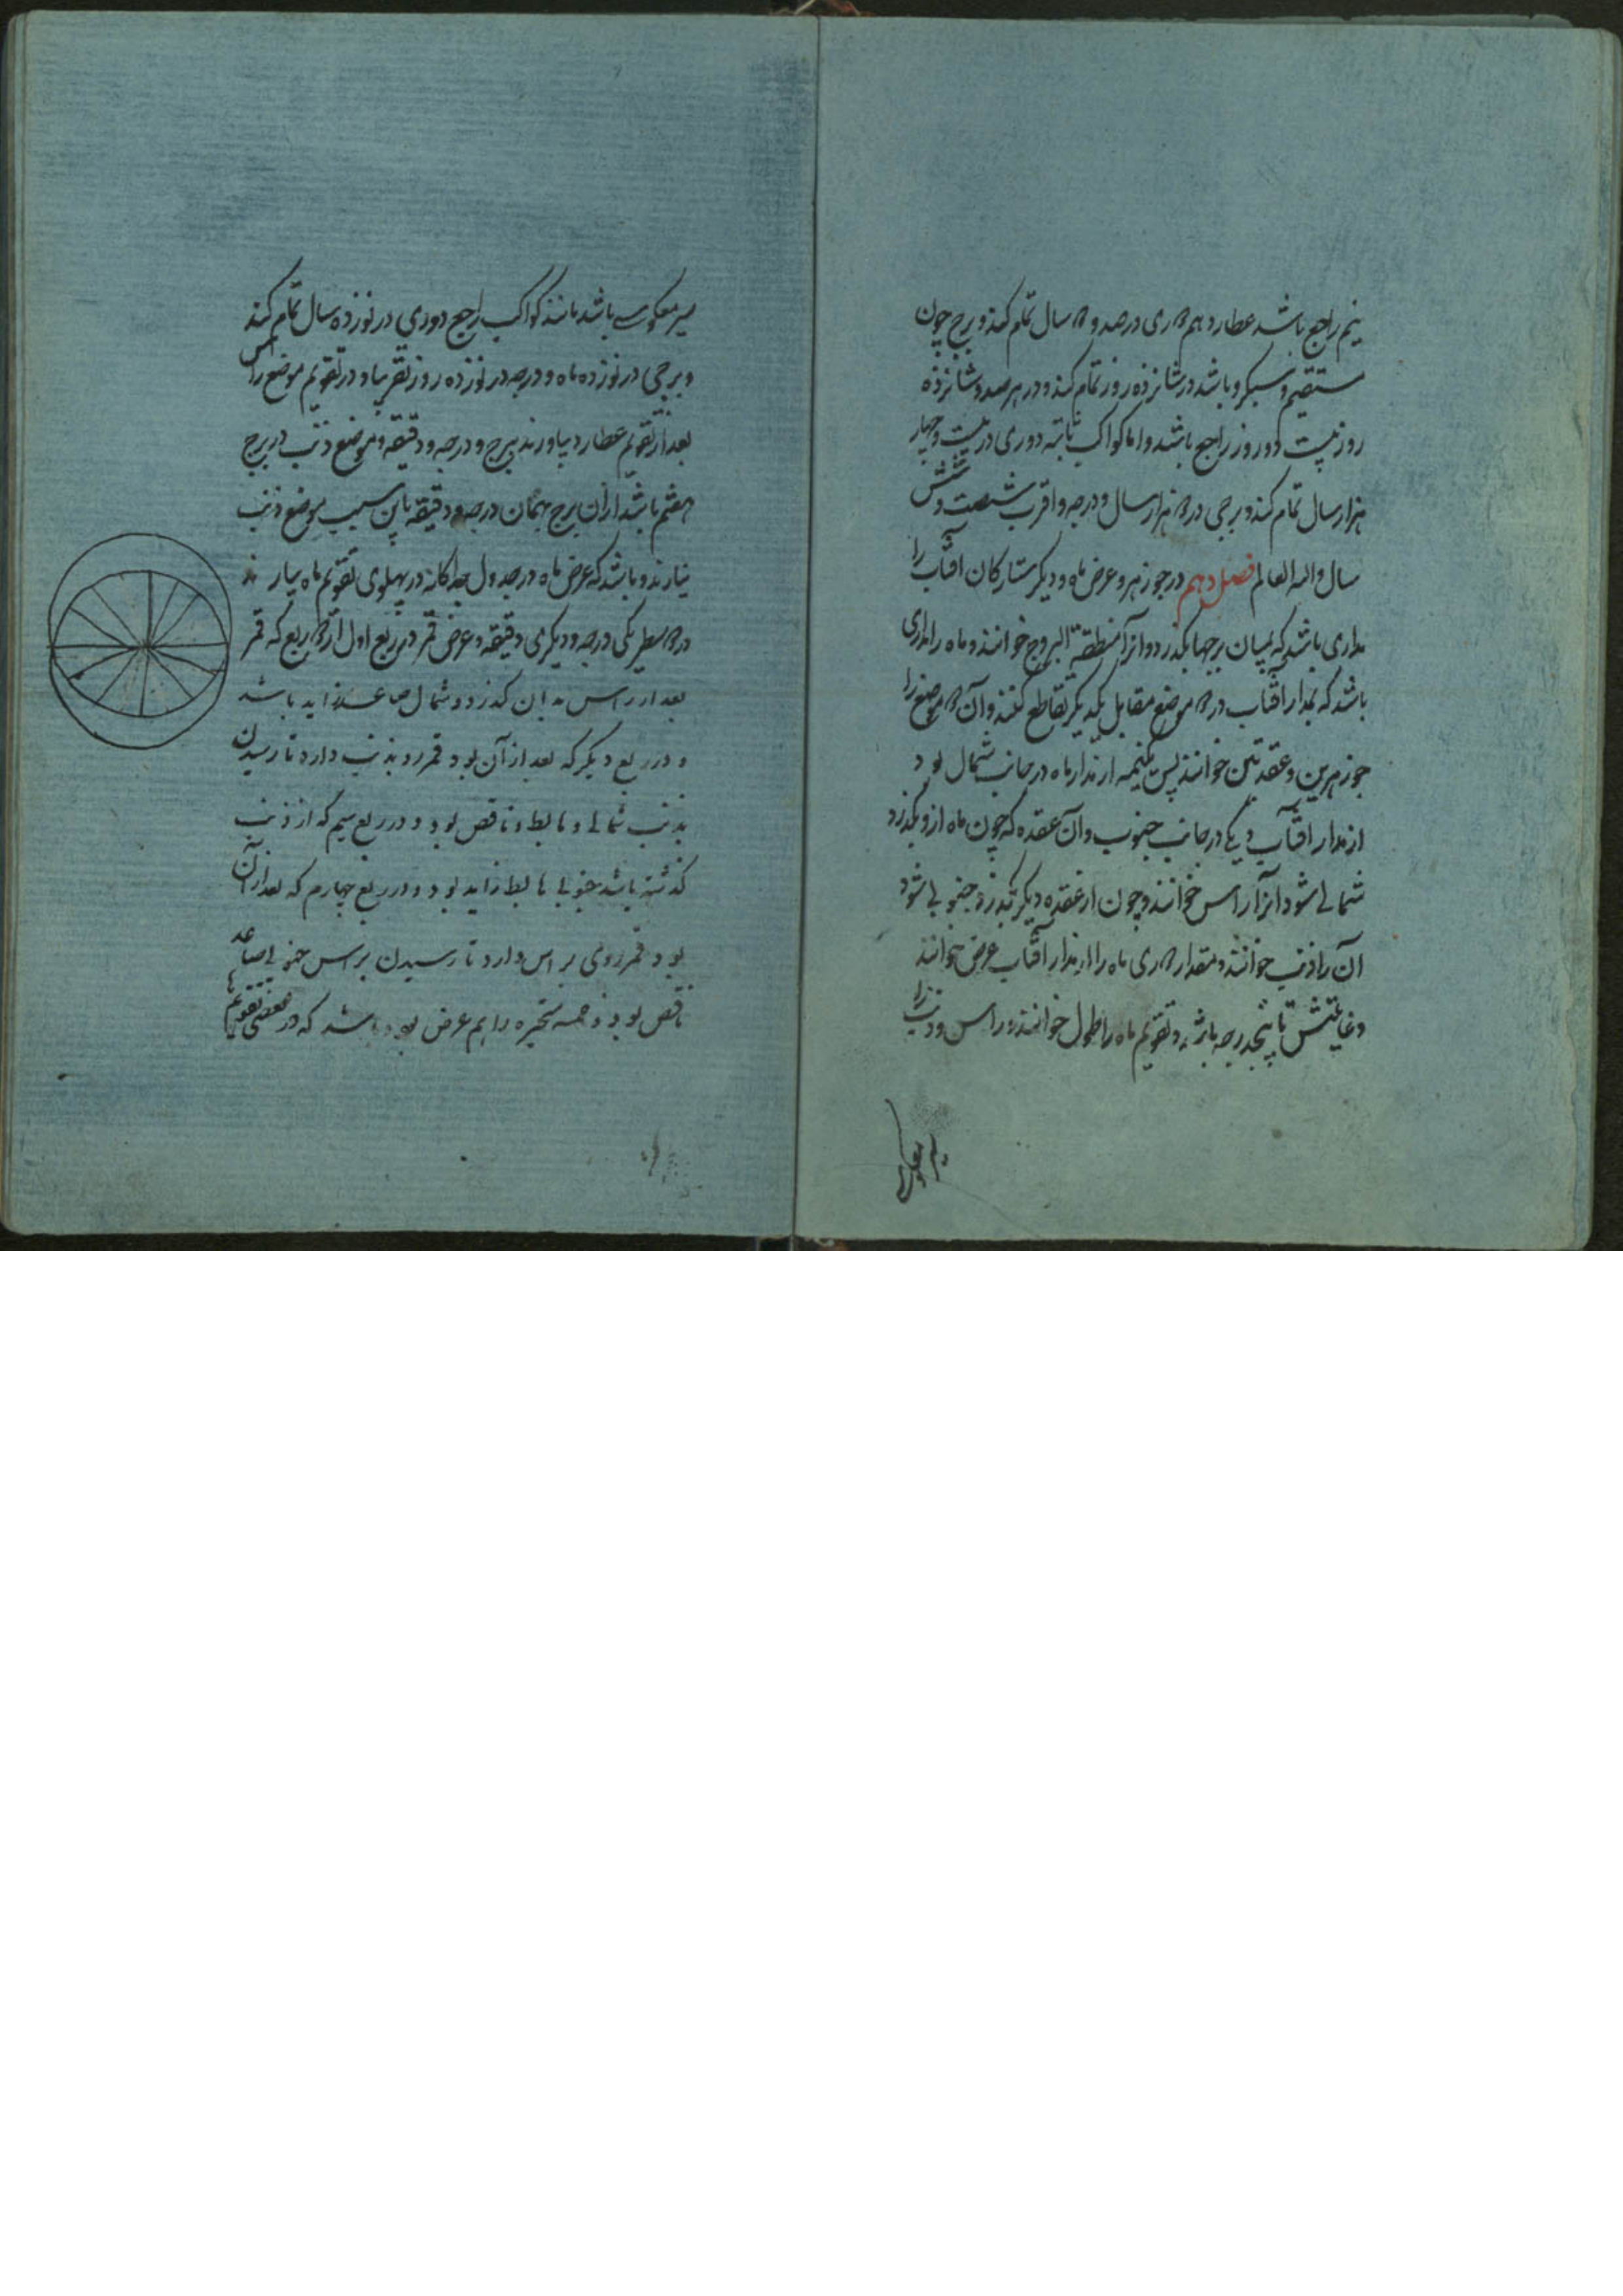 نیم راجع باشد عطارد هم دوری در صد و ۲ سال تمام کند و برج چون
مستقیم و سبکرو باشد در شانزده روز تمام کند و در هر صد و شانزده
روز بیست دو روز راجع باشد و اما کواکب ثابته دوری در بیست و چهار
هزار سال تمام کند و برجی در ۲ هزار سال و درجه و اقرب شصت و شش
سال والله العالم فصل دهم در جوزهر و عرض ماه و دیگر ستارکان افتاب را
مداری باشد که بمیان برجها بکذرد و انرا منطقة البروج خوانند و ماه را مداری
باشد که بمدار افتاب در ۲ موضع مقابل یکدیکر تقاطع کنند و آن ۲ موضع را
جوزهرین و عقدتین خوانند پس نیمه از مدار ماه در جانب شمال بود
از مدار افتاب و یکی در جانب جنوب و آن عقده که چون ماه ازو بکذرد
شمالی شود انرا راس خوانند و چون از عقده دیکر بکذرد جنوبی شود
آن را ذنب خوانند و مقدار دوری ماه را از مدار آفتاب عرض خوانند
و غایتش تا پنجدرجه باشد و تقویم ماه را طول خوانند و راس و ذنب را
سیر معکوسی
سیر معکوسی باشد مانند کواکب راجع دوری در نوزده سال تمام کند
و برجی در نوزده ماه و درجه در نوزده روز تقریبا و در تقویم موضع راس
بعد از تقویم عطارد بیاورند ببرج و درجه و دقیقه و موضع ذنب در برج
هفتم باشد از ان برج بهمان درجه و دقیقه باین سبب موضع ذنب
نیارند و باشد که عرض ماه در جدول جداکانه در پهلوی تقویم ماه بیارند
در ۲ سطر یکی درجه و دیکری دقیقه و عرض قمر در ربع اول از ۴ ربع که قمر
بعد از راس بدان کذرد و شمال صاعد زاید باشد
و در ربع دیکر که بعد از آن بود قمر رو بذنب دارد تا رسیدن
بذنب شمالی و هابط و ناقص بود و در ربع سیم که از ذنب
کذشته باشد جنوبی هابط زاید بود و در ربع چهارم که بعد از آن
بود قمر روی براس دارد تا رسیدن براس جنوبی صاعد
ناقص بود و خمسه متحیره را هم عرض بود باشد که در بعضی تقویم ها